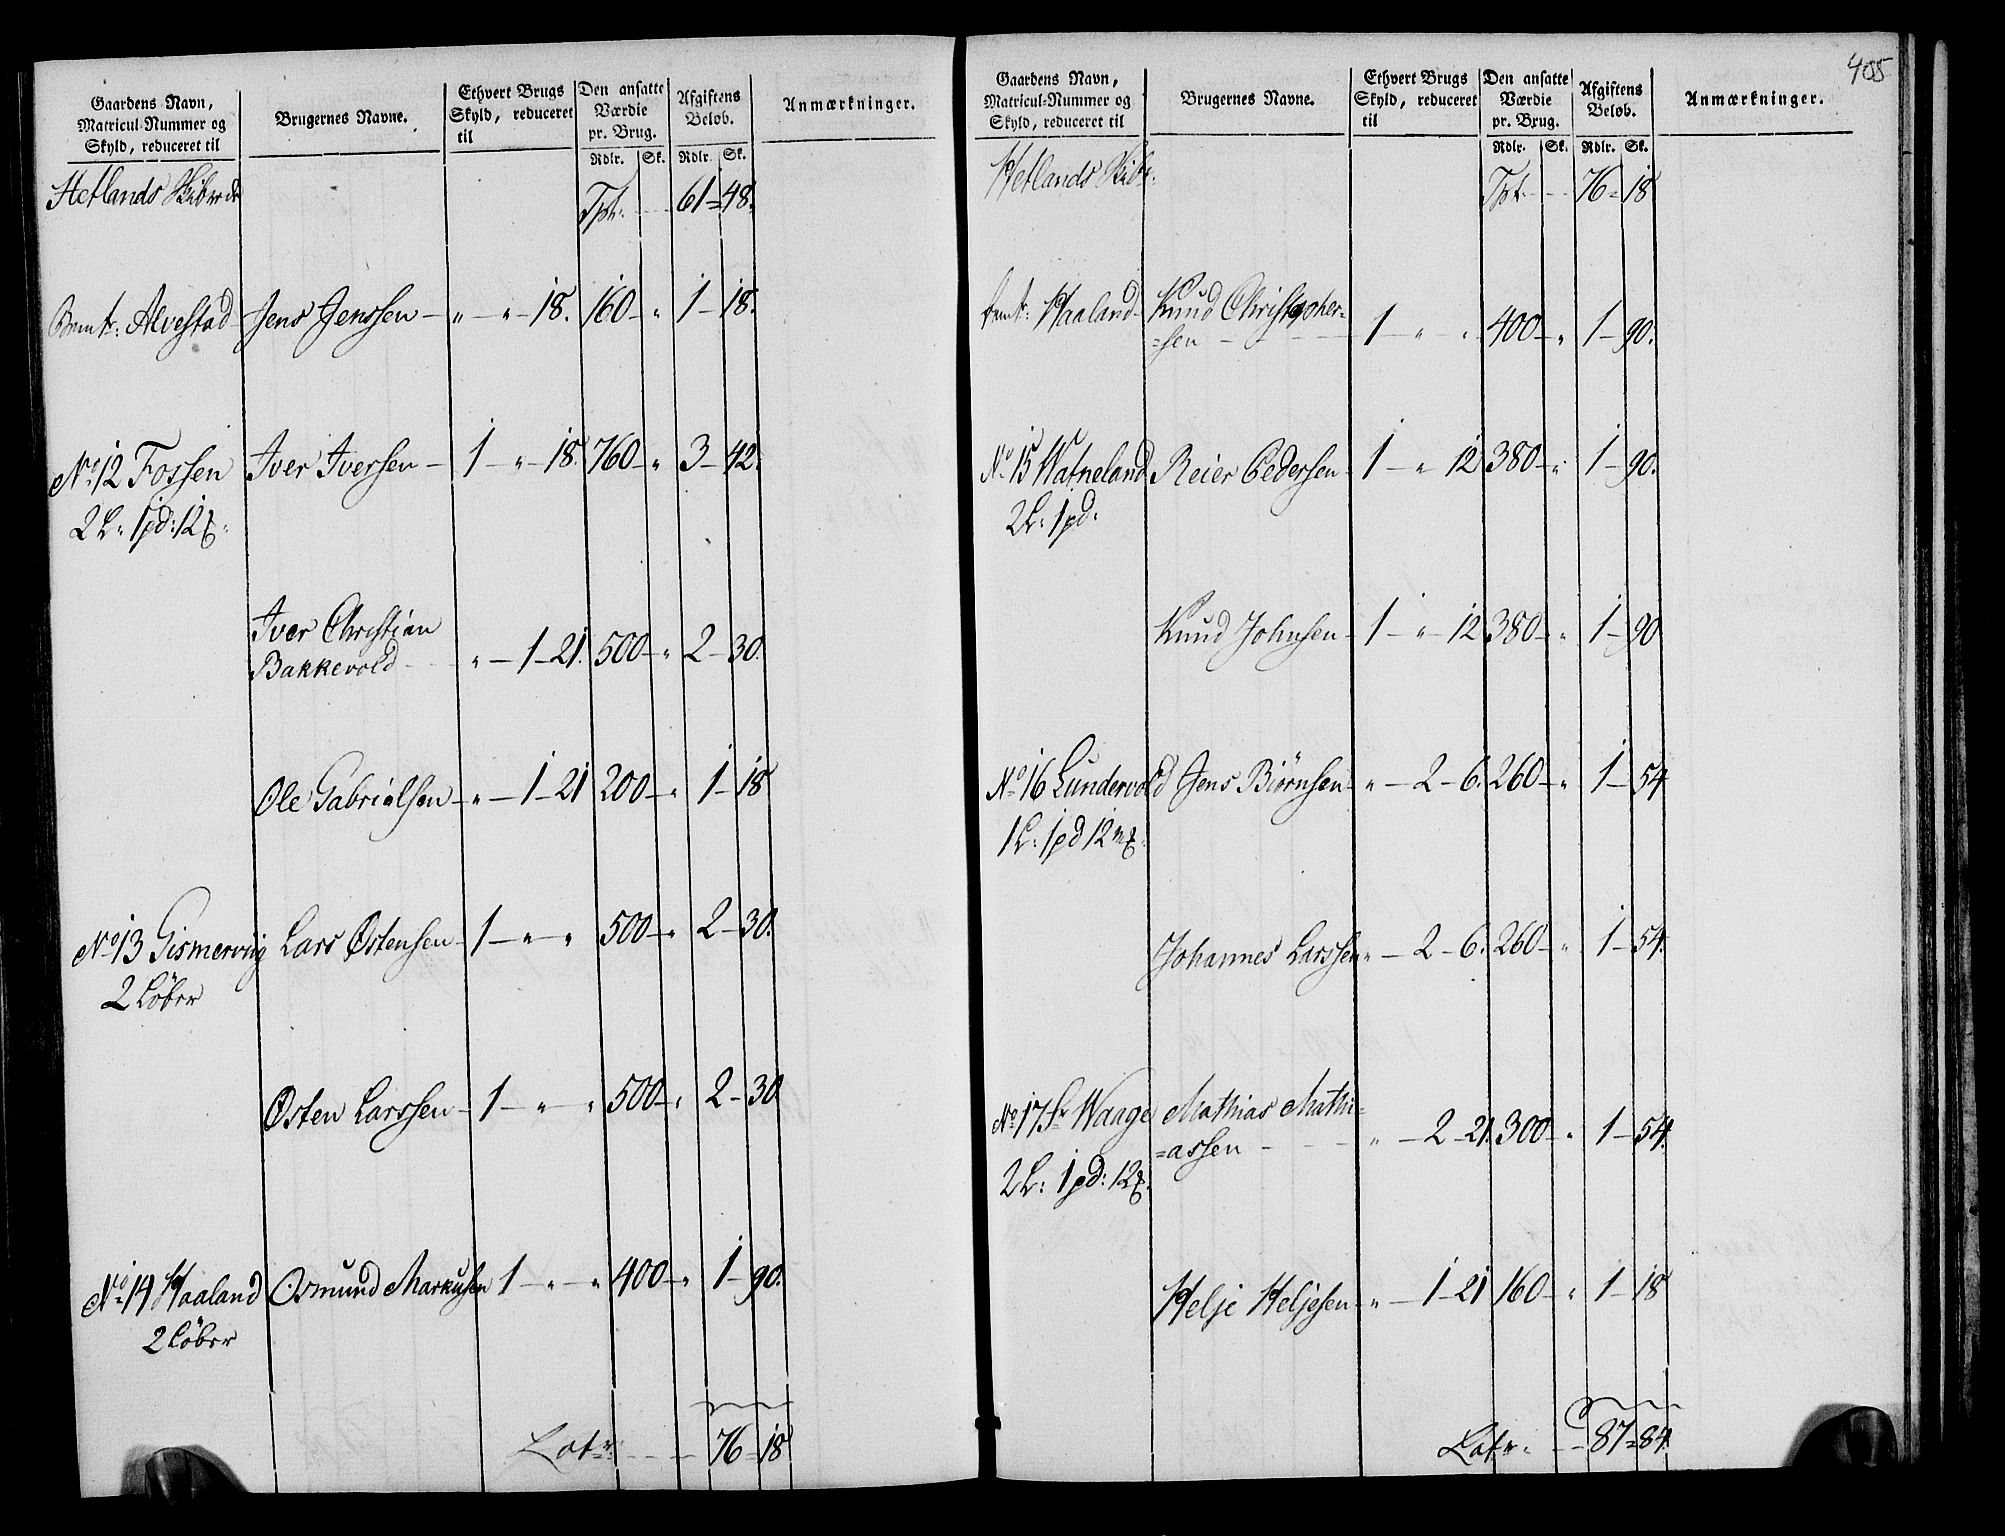 Gaardens Navn, Matricul-Nummer og Skyld, reduceret til | Brugernes Navne. | Ethvert Brugs Skyld, reduceret til | Den ansatte Værdie pr. Brug. | Afgiftens Beløb. | Anmærkninger.
Rdlr. | Sk. | Rdlr. | Sk.
Hetlands Skibrede Tpt. 61 = 48.
Bemt: Alvestad Jens Jenssen – " – " – 18. 160 – " 1 – 18.
No 12 Fossen Iver Iversen – 1 – " – 18. 760 – " 3 – 42.
2 L: 1 pd: 12
Iver Christian
Bakkevold " – 1 – 21. 500 – " 2 – 30.
Ole Gabrielsen – " – 1 – 21 200 – " 1 – 18
No 13 Gismervig Lars Østensen – 1 – " – " 500 – " 2 – 30.
2 Løber
Østen Larssen – 1 – " – " 500 – " 2 – 30
No 14 Haaland Osmund Markusen 1 – " – " 400 – " 1 – 90.
2 Løber
Latr. 76 = 18
405
Gaardens Navn, Matricul-Nummer og Skyld, reduceret til | Brugernes Navne. | Ethvert Brugs Skyld, reduceret til | Den ansatte Værdie pr. Brug. | Afgiftens Beløb. | Anmærkninger.
Rdlr. | Sk. | Rdlr. | Sk.
Hetlands Skibr: Tpt. 76 = 18
bemt: Haaland Knud Christopher=
=sen 1 – " " 400 – " 1 – 90.
No 15 Watneland Reier Pedersen – 1 – " 12 380 – " 1 – 90.
2 L: 1 pd.
Knud Johnsen – 1 – " – 12 380 – " 1 – 90
No 16 Lundervold Jens Biørnsen – " – 2 – 6. 260 – " 1 – 54
1 L: 1 pd 12
Johannes Larssen " – 2 – 6. 260 – " 1 – 54.
No 17 Waage Mathias Mathi=
=assen " – 2 – 21. 300 – " 1 – 54.
2 L: 1 pd: 12
Helje Heljesen – " – 1 – 21 160 – " 1 – 18
Latr. 87 = 84.